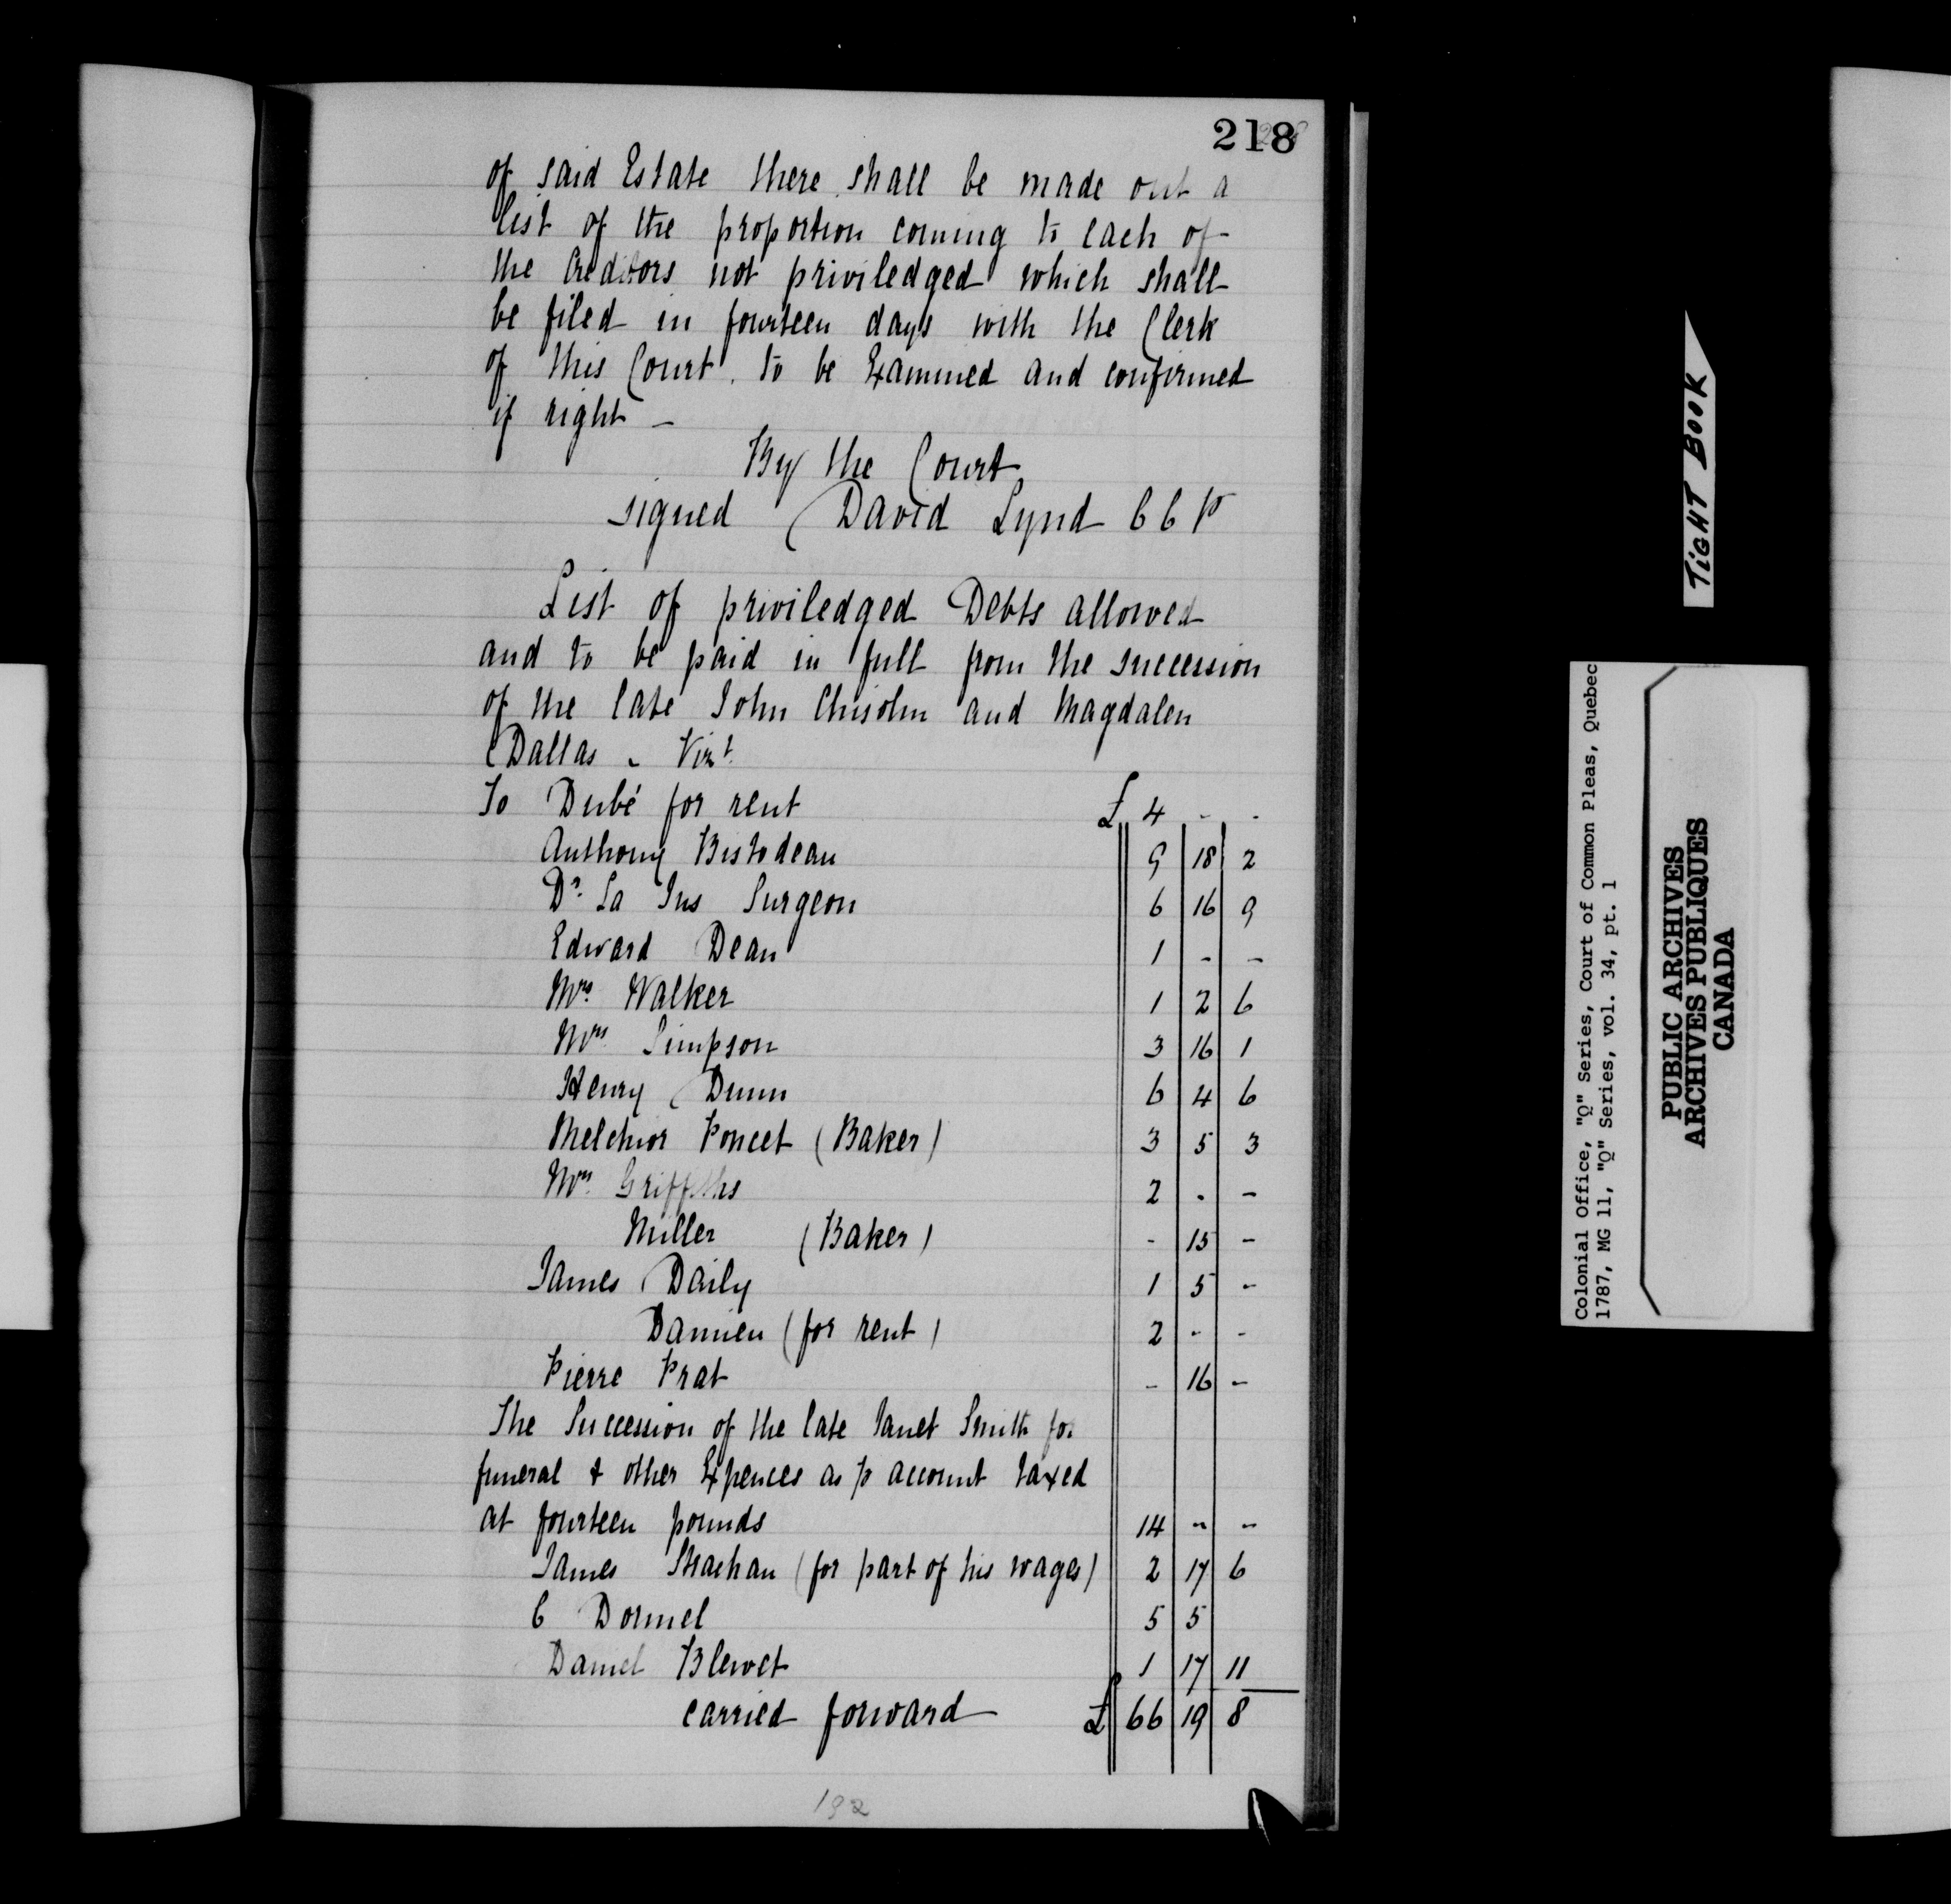 218
of said Estate there shall be made out a
list of the proportion coming to each of
the Creditors not priviledged which shall
be filed in fourteen days with the Clerk
of this Court. to be Examined and confirmed
if right –
By the Court
signed David Lynd C C P
List of priviledged Debts allowed
and to be paid in full from the succession
of the late John Chisolm and Magdalen
Dallas - Vizt.
To Dubé for rent £ 4 - -
Anthony Bistodeau 9 18 2
Dr. La Jus Surgeon 6 16 9
Edward Dean 1 - -
Mrs. Walker 1 2 6
Mrs. Simpson 3 16 1
Henry Dunn 6 4 6
Melchior Poncet (Baker) 3 5 3
Mrs. Griffiths 2 - -
Miller (Baker) - 15 -
James Daily 1 5 -
Damien (for rent) 2 - -
Pierre Prat - 16 -
The Succession of the late Janet Smith for
funeral & other Expences as p account taxed
at fourteen pounds 14 - -
James Strachan (for part of his wages) 2 17 6
C Dormel 5 5
Daniel Blewet 1 17 11
carried forward £ 66 19 8
192
TIGHT BOOK
Colonial Office, "Q" Series, Court of Common Pleas, Quebec
1787, MG 11, "Q" Series, vol. 34, pt. 1
PUBLIC ARCHIVES
ARCHIVES PUBLIQUES
CANADA